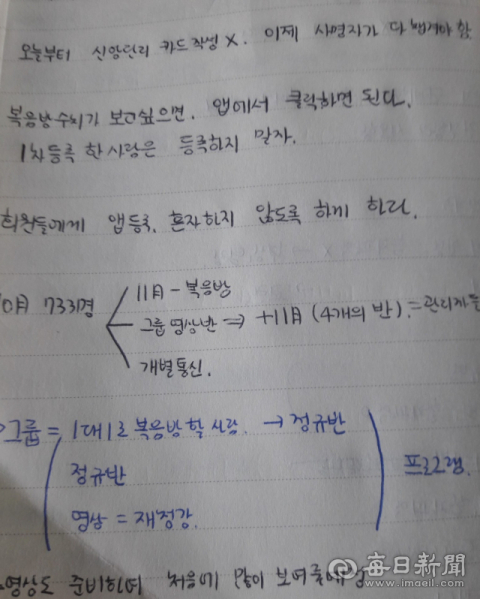 오늘부터 신앙관리 카드작성 X. 이제 사명자가 다 챙겨야 함
복음방수치가 보고싶으면. 앱에서 클릭하면 된다.
1차등록 한 사람은 등록하지 말자.
회원들에게 앱등록, 혼자하지 않도록 하게 하라.
10月 733명
11月 - 복음방
그룹 영상반 ⇒ +11月 (4개의 반). = 관리자들
개별통신.
그룹 = 1대1로 복음방 할 사람. → 정규반
정규반
영상 = 재정강.
프로그램.
영상도 준비하여 처음에 많이 보여줄
每日新聞
www.imaeil.com